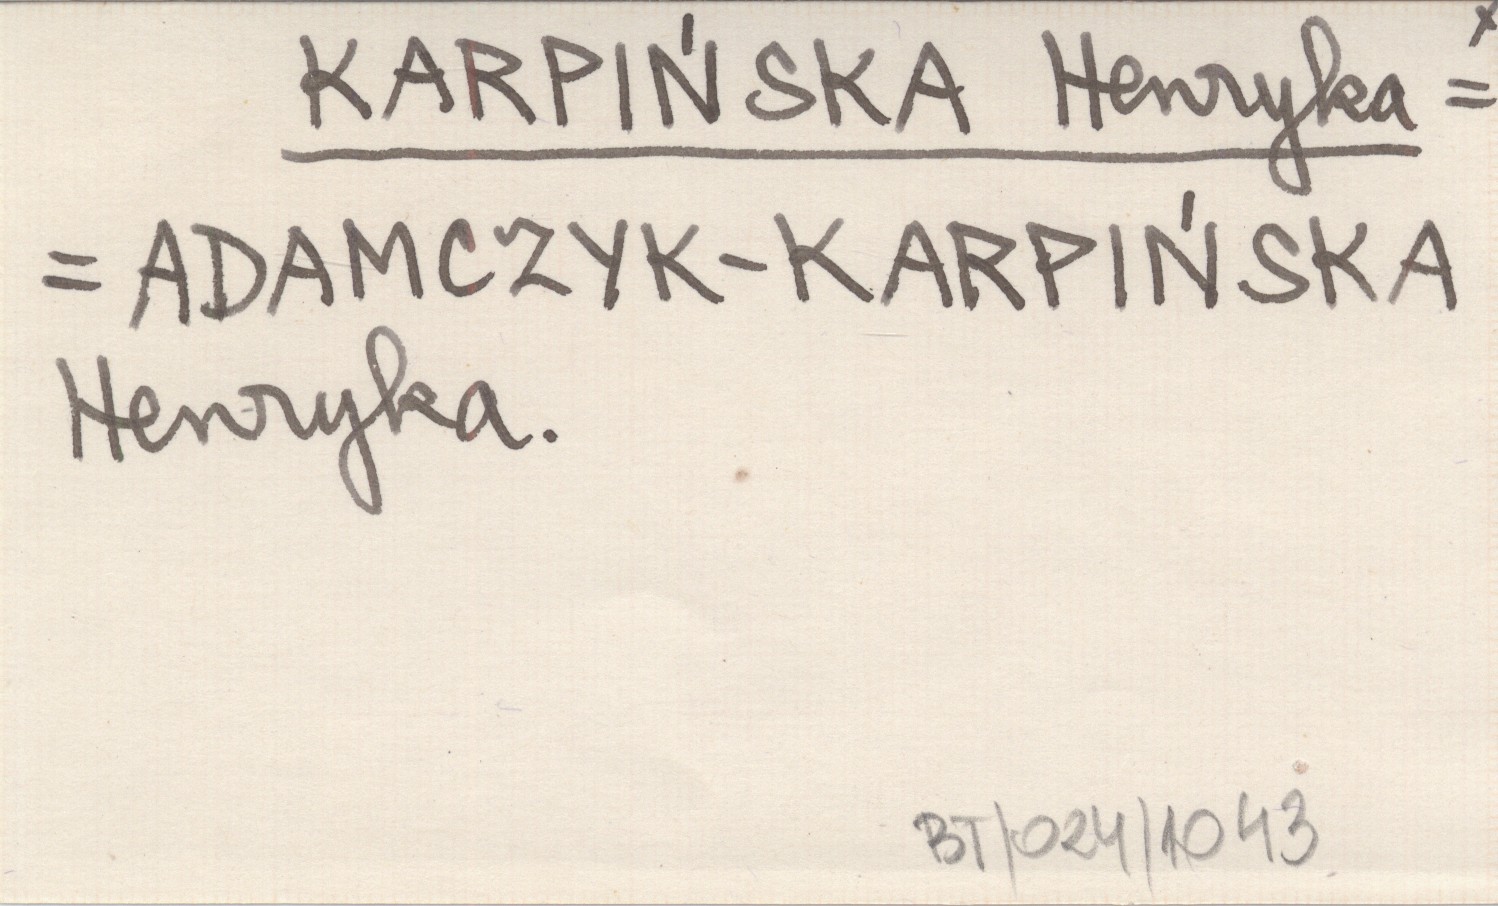 x
KARPIŃSKA Henryka =
= ADAMCZYK-KARPIŃSKA
Henryka.
BT/024/1043